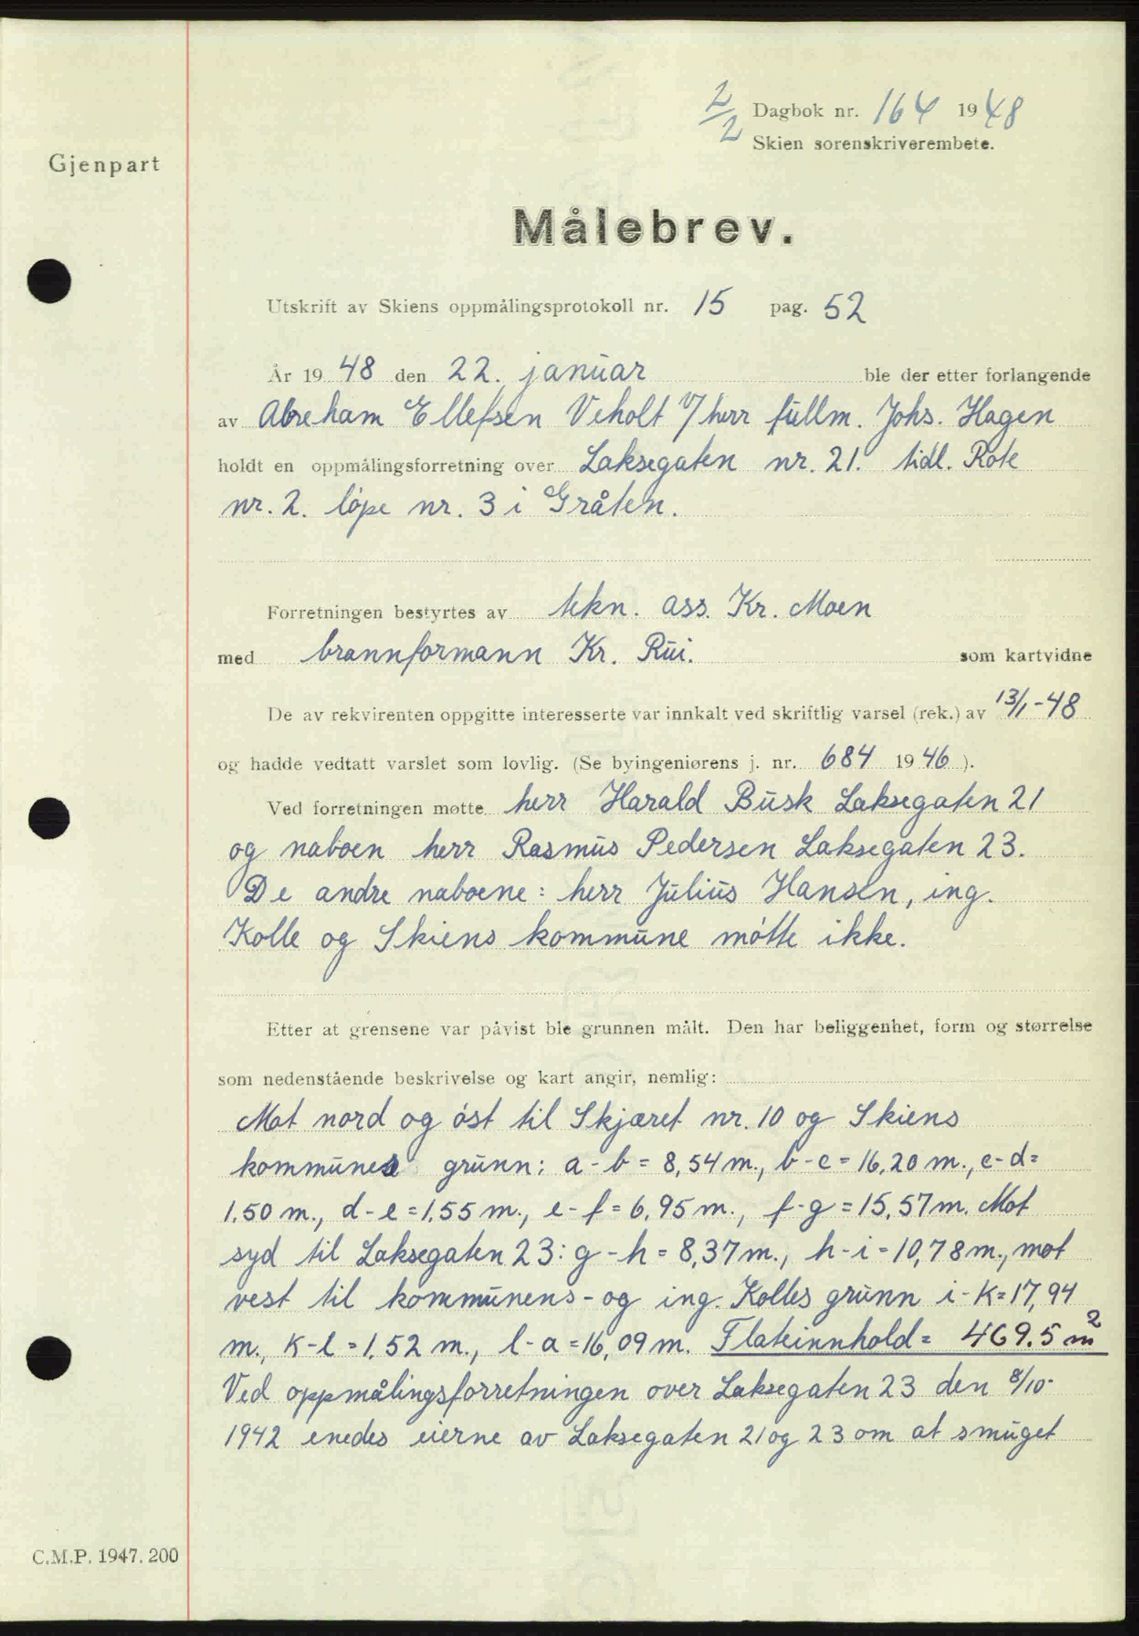 2/2 Dagbok nr. 164 1948
Skien sorenskriverembete.
Gjenpart
Målebrev.
Utskrift av Skiens oppmålingsprotokoll nr. 15 pag. 52
År 1948 den 22. januar ble der etter forlangende
av Abreham Ellefsen Veholt v/herr fullm. Johs. Hagen
holdt en oppmålingsforretning over Laksegaten nr. 21. tidl. Rote
nr. 2. løpe nr. 3 i Gråten.
Forretningen bestyrtes av tekn. ass. Kr. Moen
med brannformann Kr. Rui. som kartvidne
De av rekvirenten oppgitte interesserte var innkalt ved skriftlig varsel (rek.) av 13/1-48
og hadde vedtatt varslet som lovlig. (Se byingeniørens j. nr. 684 1946 ).
Ved forretningen møtte herr Harald Busk Laksegaten 21
og naboen herr Rasmus Pedersen Laksegaten 23.
De andre naboene: herr Julius Hansen, ing.
Kolle og Skiens kommune møtte ikke.
Etter at grensene var påvist ble grunnen målt. Den har beliggenhet, form og størrelse
som nedenstående beskrivelse og kart angir, nemlig:
Mot nord og øst til Skjæret nr. 10 og Skiens
kommunes grunn: a-b = 8,54 m., b-c = 16,20 m., c-d=
1.50 m., d-e = 1,55 m., e-f = 6,95 m., f-g = 15,57 m. Mot
syd til Laksegaten 23: g-h = 8,37 m., h-i = 10,78 m., mot
vest til kommunens- og ing. Kolles grunn i-k = 17,94
m., k-l = 1,52 m., l-a = 16,09 m. Flateinnhold = 469.5 m²
Ved oppmålingsforretningen over Laksegaten 23 den 8/10-
1942 enedes eierne av Laksegaten 21 og 23 om at smuget
C.M.P. 1947. 200